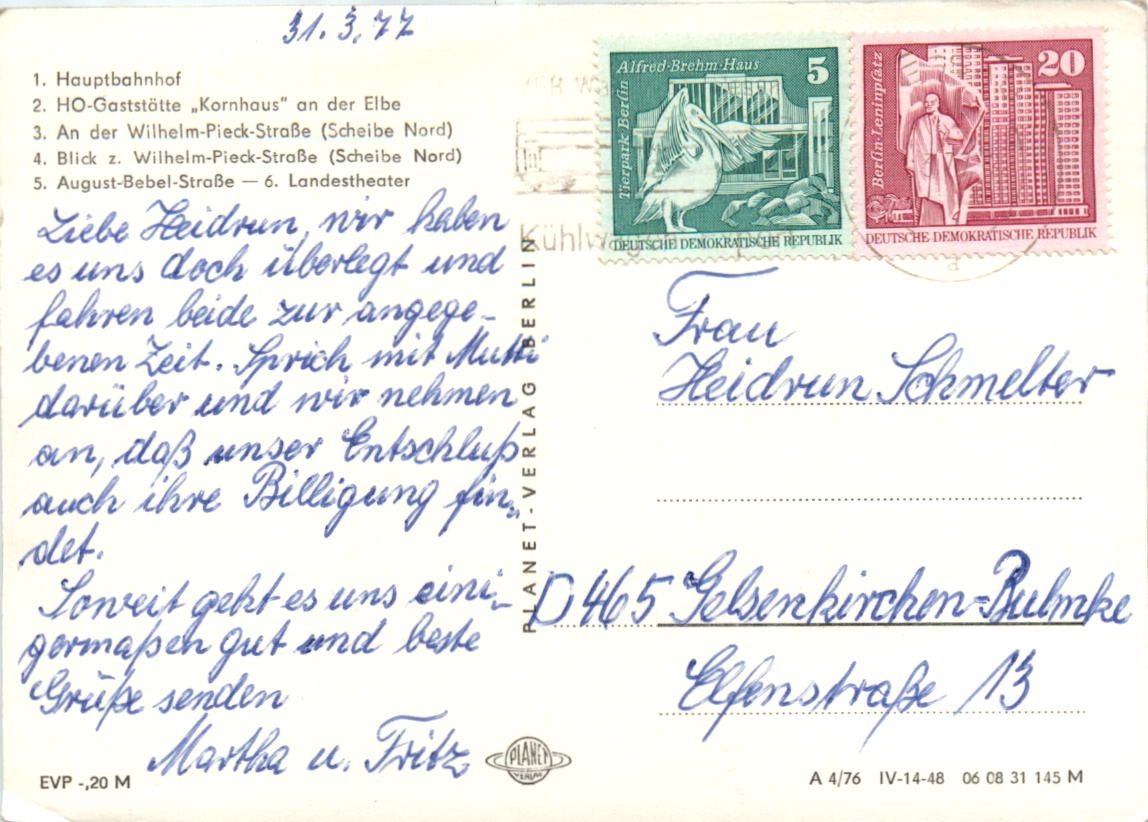 31.3.77
1. Hauptbahnhof
2. HO-Gaststätte „Kornhaus" an der Elbe
3. An der Wilhelm-Pieck-Straße (Scheibe Nord)
4. Blick z. Wilhelm-Pieck-Straße (Scheibe Nord)
5. August-Bebel-Straße — 6. Landestheater
Liebe Heidrun, wir haben
es uns doch überlegt und
fahren beide zur angege-
benen Zeit. Sprich mit Mutti
darüber und wir nehmen
an, daß unser Entschluß
auch ihre Billigung fin-
det.
Soweit geht es uns eini-
germaßen gut und beste
Grüße senden
Martha u. Fritz
EVP -,20 M
PLANET-VERLAG BERLIN
PLANET
VERLAG
Alfred-Brehm-Haus
5
Tierpark Berlin
DEUTSCHE DEMOKRATISCHE REPUBLIK
20
Berlin-Leninplatz
DEUTSCHE DEMOKRATISCHE REPUBLIK
Frau
Heidrun Schmelter
D 465 Gelsenkirchen-Bulmke
Elfenstraße 13
A 4/76 IV-14-48 06 08 31 145 M